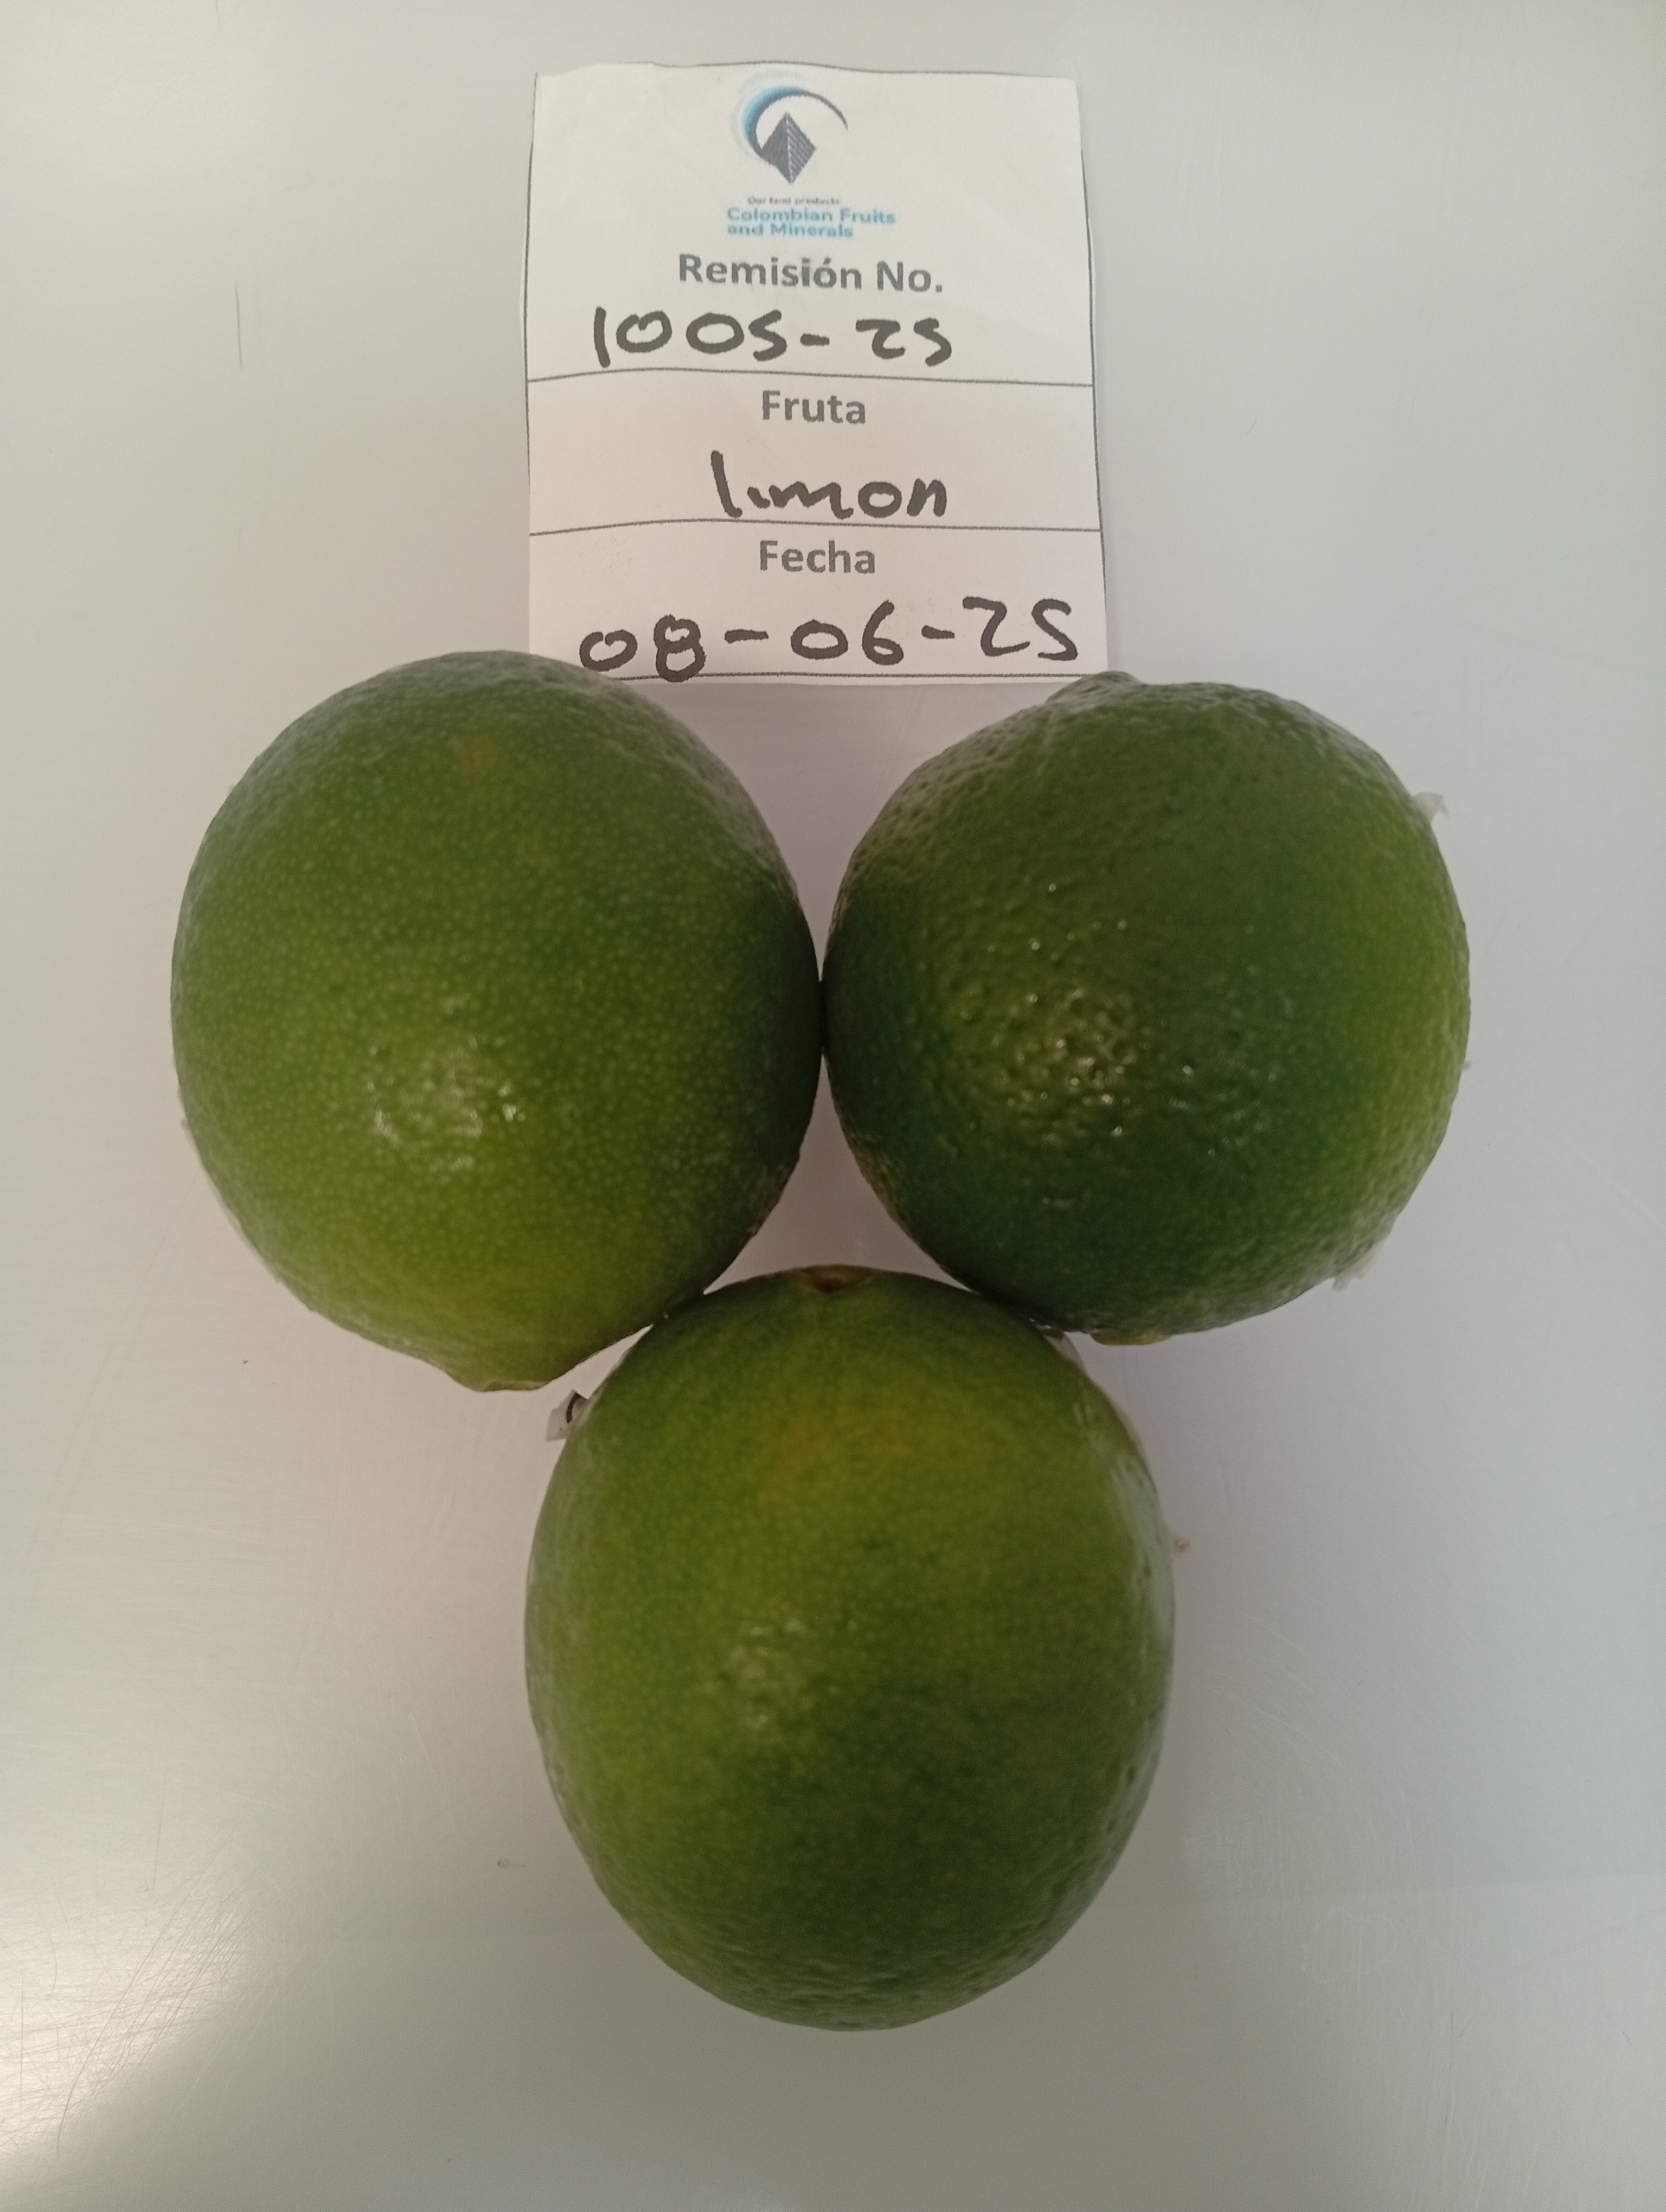 Our best products
Colombian Fruits
and Minerals
Remisión No.
1005-25
Fruta
limon
Fecha
08-06-25